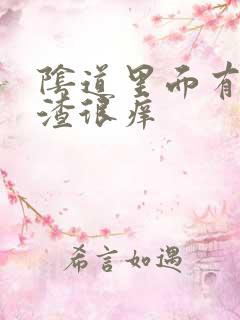 陰道里而有
渣很痒
希言如遇